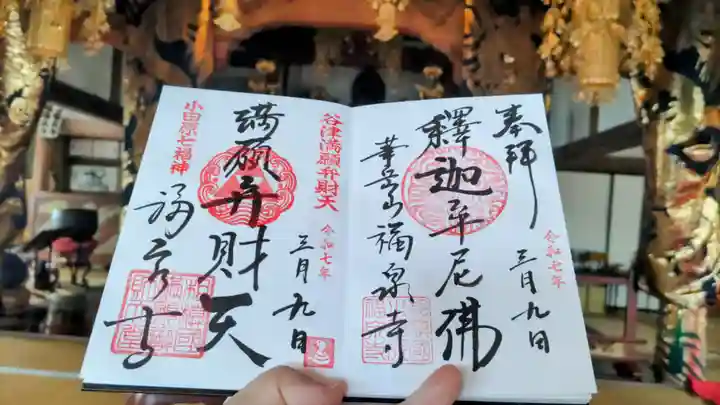 奉拝
令和七年
三月九日
釋迦牟尼佛
華岳山福泉寺
谷津満願弁財天
令和七年
三月九日
満願弁財天
小田原七福神
福泉寺